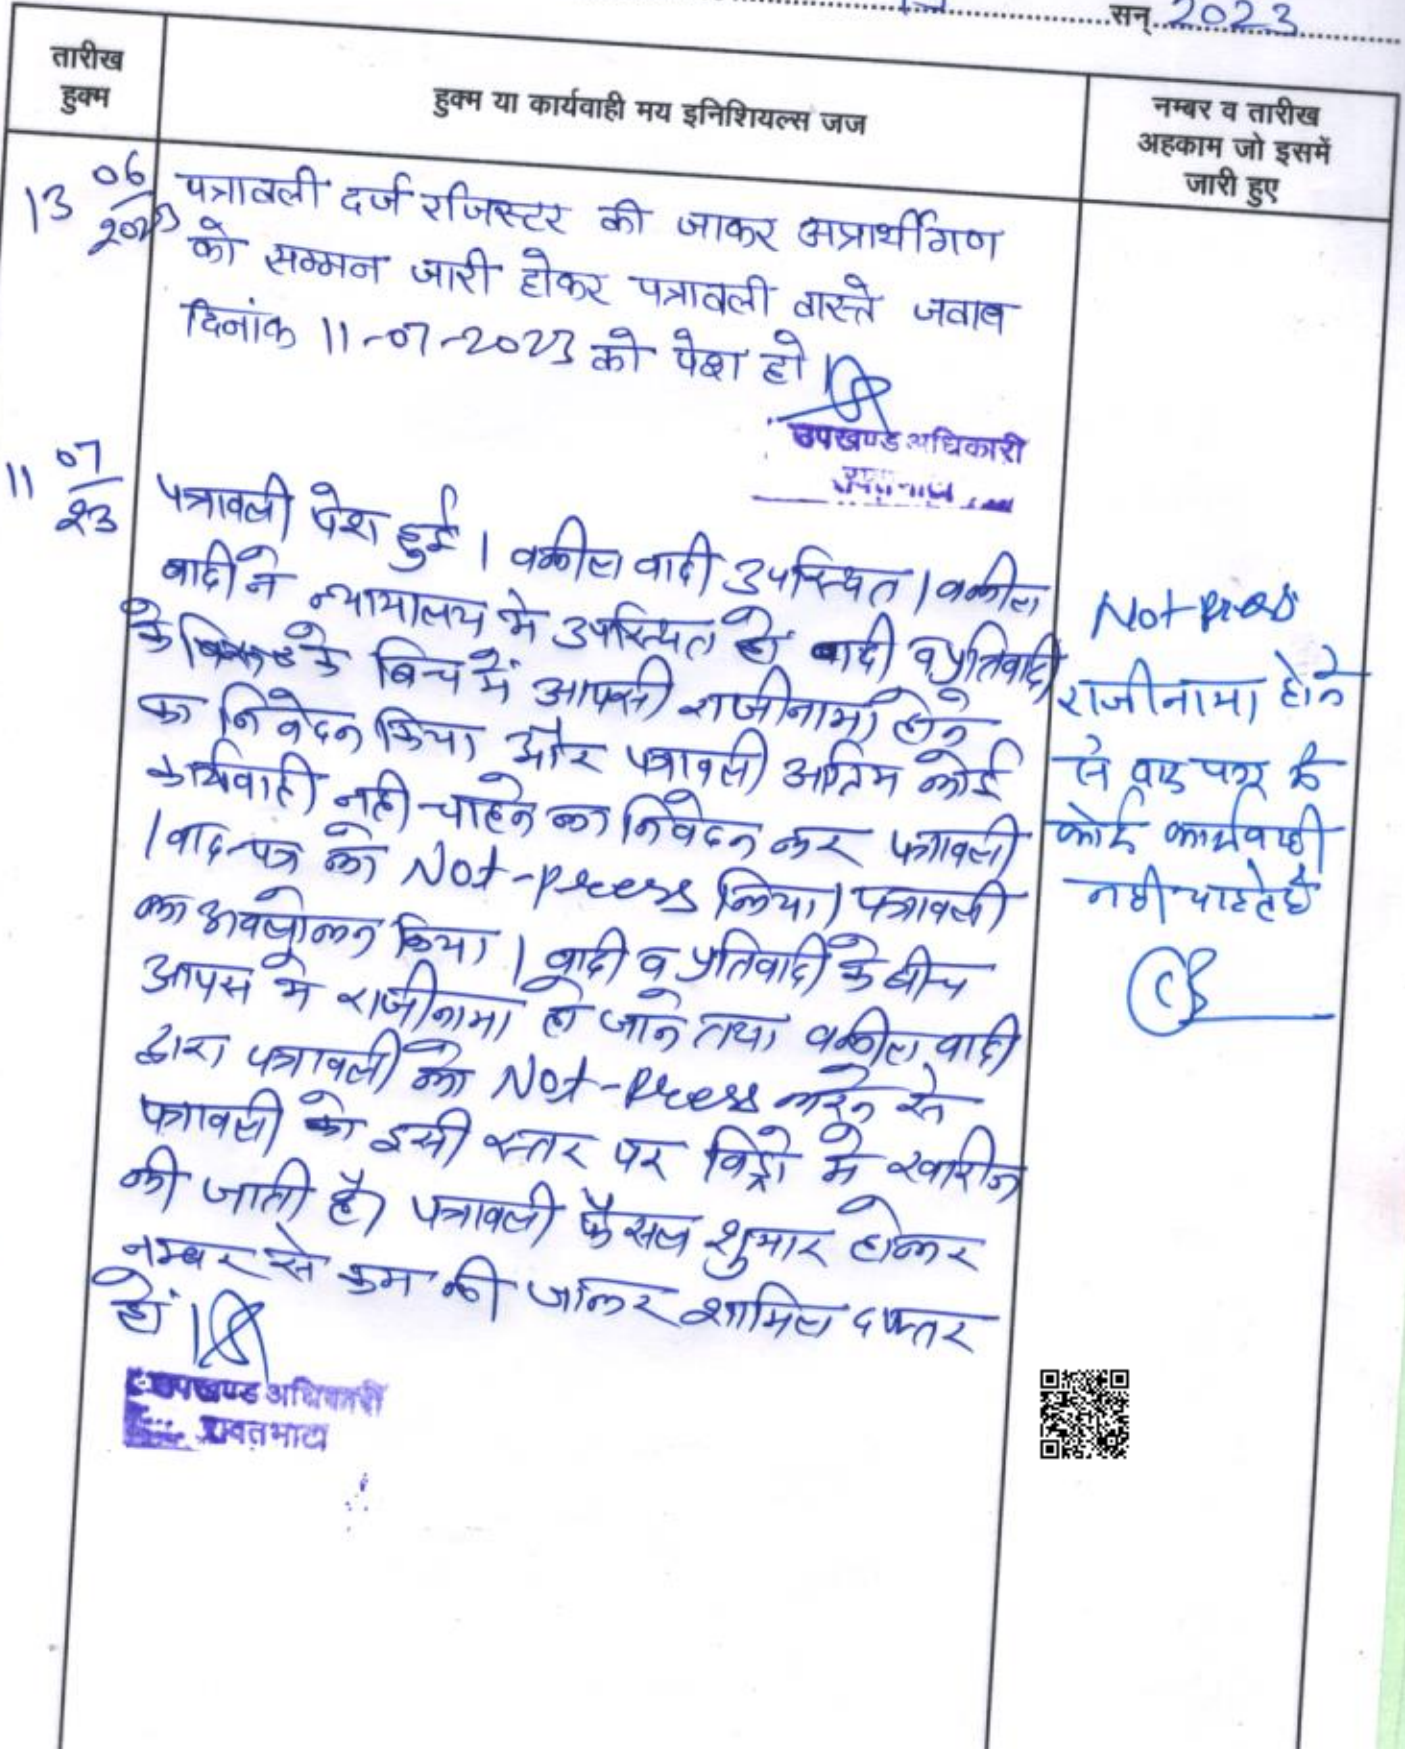 सन् 2023
तारीख
हुक्म
हुक्म या कार्यवाही मय इनिशियल्स जज
नम्बर व तारीख
अहकाम जो इसमें
जारी हुए
13 06/2023
पत्रावली दर्ज रजिस्टर की जाकर अप्रार्थीगण
को सम्मन जारी होकर पत्रावली वास्ते जवाब
दिनांक 11-07-2023 को पेश हो।
उपखण्ड अधिकारी
11 07/23
पत्रावली पेश हुई। वकील वादी उपस्थित। वकील
वादी ने न्यायालय मे उपस्थित हो वादी व प्रतिवादी
के बिच में आपसी राजीनामा होने
का निवेदन किया और पत्रावली अग्रिम कोई
कार्यवाही नही चाहने का निवेदन कर पत्रावली
/वाद-पत्र को Not-press किया। पत्रावली
का अवलोकन किया। वादी व प्रतिवादी के बीच
आपस मे राजीनामा हो जाने तथा वकील वादी
द्वारा पत्रावली को Not-Press करने से
पत्रावली को इसी स्तर पर विड्रो मे खारीज
की जाती है। पत्रावली फैसल शुमार होकर
नम्बर से कम की जाकर शामिल दफ्तर
हो।
उपखण्ड अधिकारी
रावतभाटा
Not press
राजीनामा होने
से वाद पत्र मे
कोई कार्यवाही
नही चाहते है